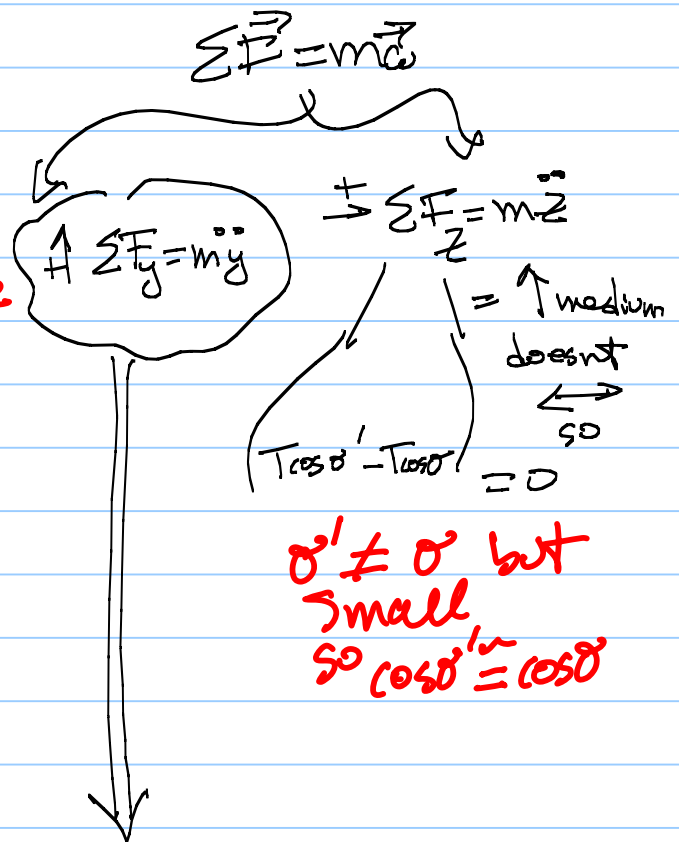 ΣF⃗ = ma⃗
+↑ ΣF_y = mÿ
+→ ΣF_z = mz̈
= ↑ medium
doesnt
↔
so
(Tcosθ' - Tcosθ) = 0
θ' ≠ θ but
small
so cosθ' ≅ cosθ